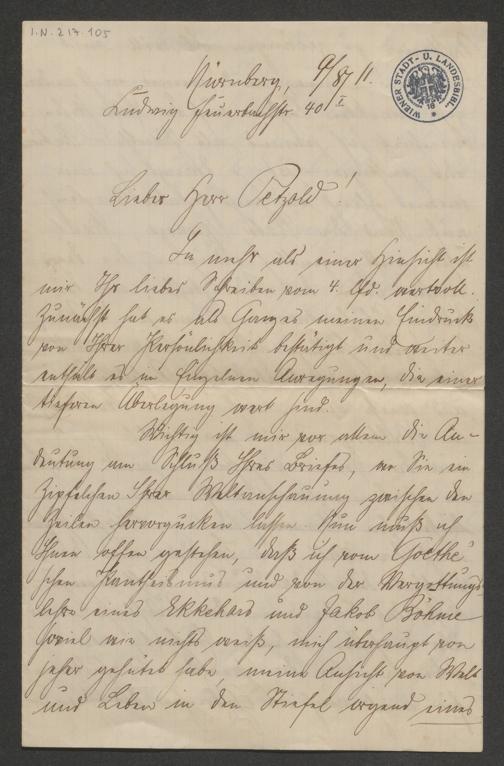 I.N. 217.105
WIENER STADT- U. LANDESBIBL.
Nürnberg, 9/8 11.
Ludwig Feuerbachstr. 40 I
Lieber Herr Petzold!
In mehr als einer Hinsicht ist
mir Ihr liebes Schreiben vom 4. lfd. wertvoll.
Zunächst hat es als Ganzes meinen Eindruck
von Ihrer Persönlichkeit bestätigt und weiter
enthält es im Einzelnen Anregungen, die einer
tieferen Überlegung wert sind.
Wichtig ist mir vor allem die An-
deutung am Schluß Ihres Briefes, wo Sie ein
Zipfelchen Ihrer Weltanschauung zwischen den
Zeilen hervorgucken lassen. Nun muß ich
Ihnen offen gestehen, daß ich vom Goethe'
schen Pantheismus und von der Vergottungs
lehre eines Ekkehard und Jakob Böhme
soviel wie nichts weiß, mich überhaupt von
jeher gehütet habe meine Ansicht von Welt
und Leben in den Stiefel irgend eines